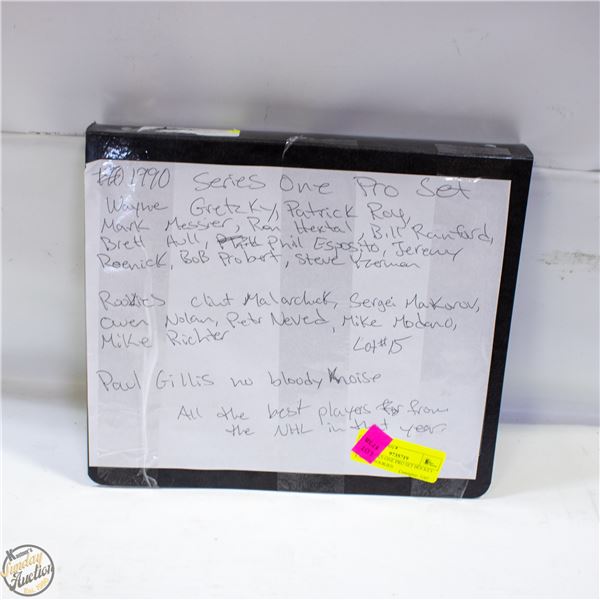 1990 Series One Pro Set
Wayne Gretzky, Patrick Roy,
Mark Messier, Ron Hextal, Bill Ranford,
Brett Hull, Phil Esposito, Jeremy
Roenick, BoB Probert, Steve Yzerman
Rookies Clint Malarchuck, Sergei Makarov,
Owen Nolan, Petr Neved, Mike Modano,
Mike Richter
Lot #15
Paul Gillis no bloody noise
All the best players from
the NHL in that year.
LOT
Sunday
Auction